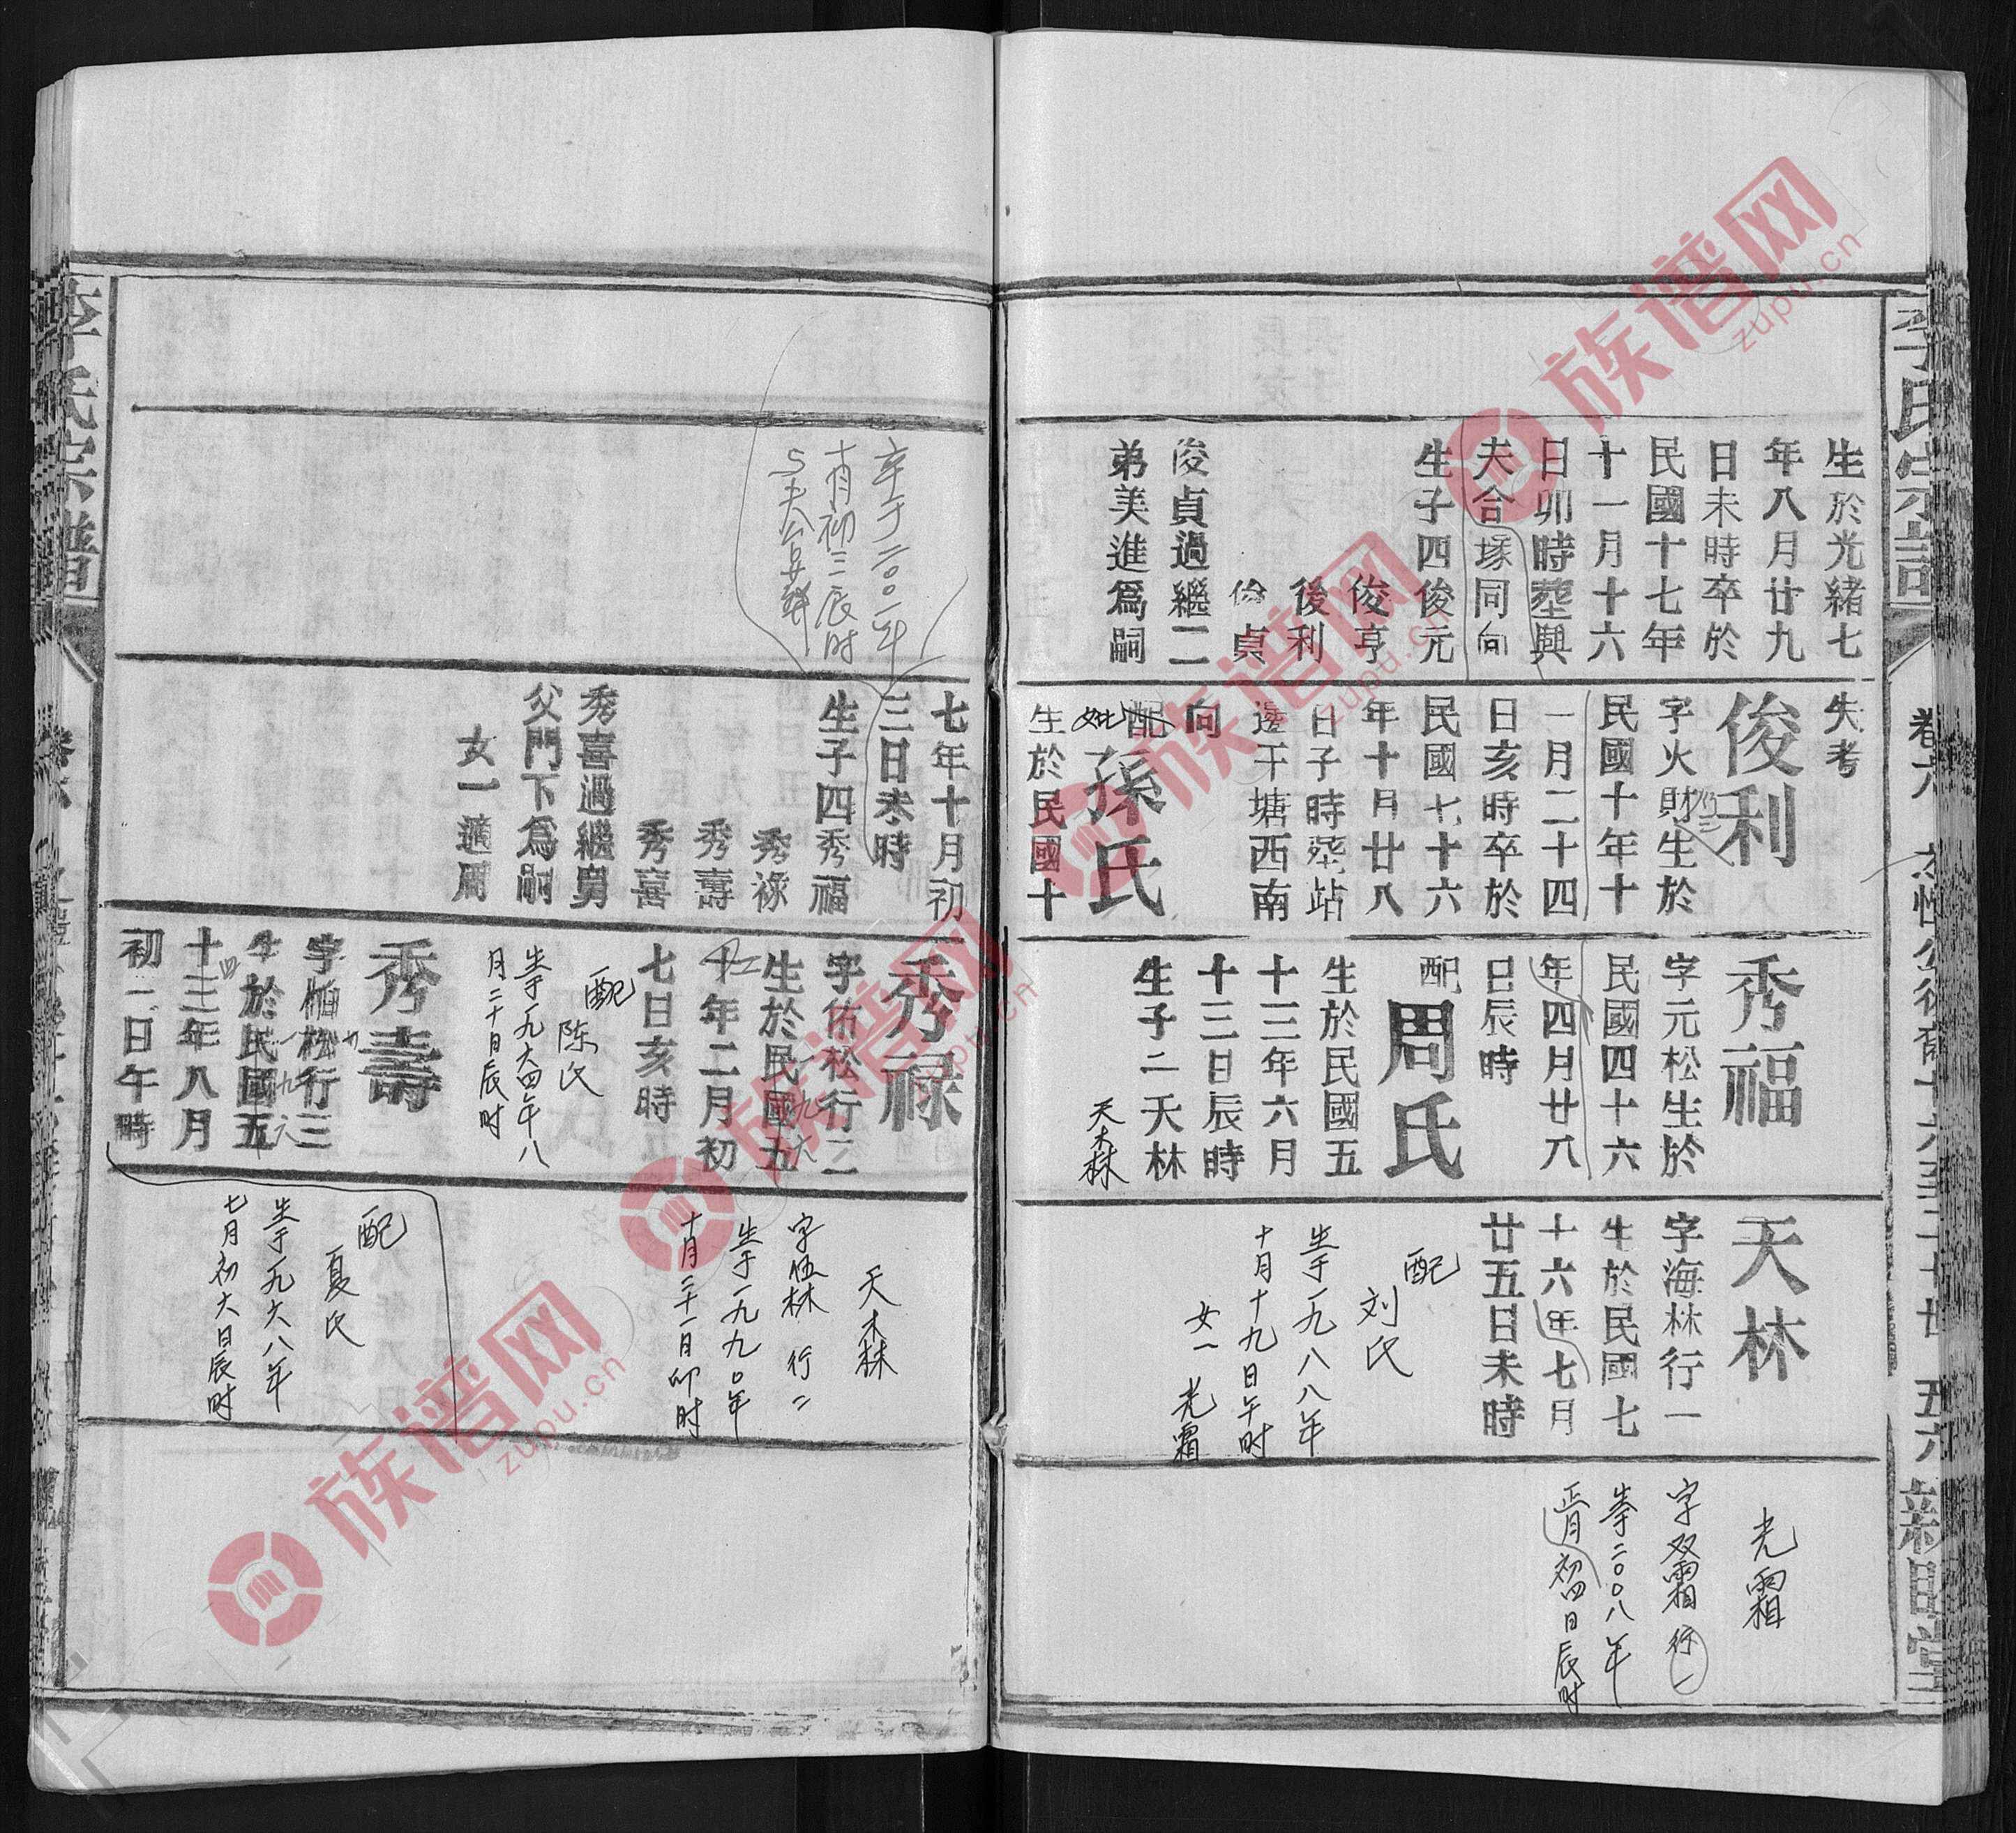 李氏宗譜
卷六
五六
生於光緒七
年八月廿九
日未時卒於
民國十七年
十一月十六
日卯時塟與
夫合塚同向
生子四俊元
俊亨
後利
俊貞
俊貞過繼二
弟美進爲嗣
失考
俊利
字火財生於
民國十年十
一月二十四
日亥時卒於
民國七十六
年十月廿八
日子時塟站
邊干塘西南
向
配
妣
孫氏
生於民國十
秀福
字元松生於
民國四十六
年四月廿八
日辰時
配
周氏
生於民國五
十三年六月
十三日辰時
生子二天林
天木林
天林
字海林行一
生於民國七
十六年七月
廿五日未時
配
刘氏
生于一九八八年
十月十九日午时
女一 光霜
光霜
字双霜行一
生于二〇〇八年
正月初四日辰时
李氏宗譜
卒于二〇〇一年
十月初三辰时
与夫合立葬
七年十月初
三日未時
生子四秀福
秀祿
秀壽
秀喜
秀喜過繼舅
父門下爲嗣
女一適周
秀祿
字佑松行二
生於民國五
十年二月初
七日亥時
配
陈氏
生于一九六四年八
月二十日辰时
秀壽
字恒松行三
生於民國五
十三年八月
初二日午時
天木林
字伍林 行二
生于一九九〇年
十月二十一日卯时
配
夏氏
生于一九六八年
七月初六日辰时
族谱网
zupu.cn
族谱网
zupu.cn
族谱网
zupu.cn
族谱网
zupu.cn